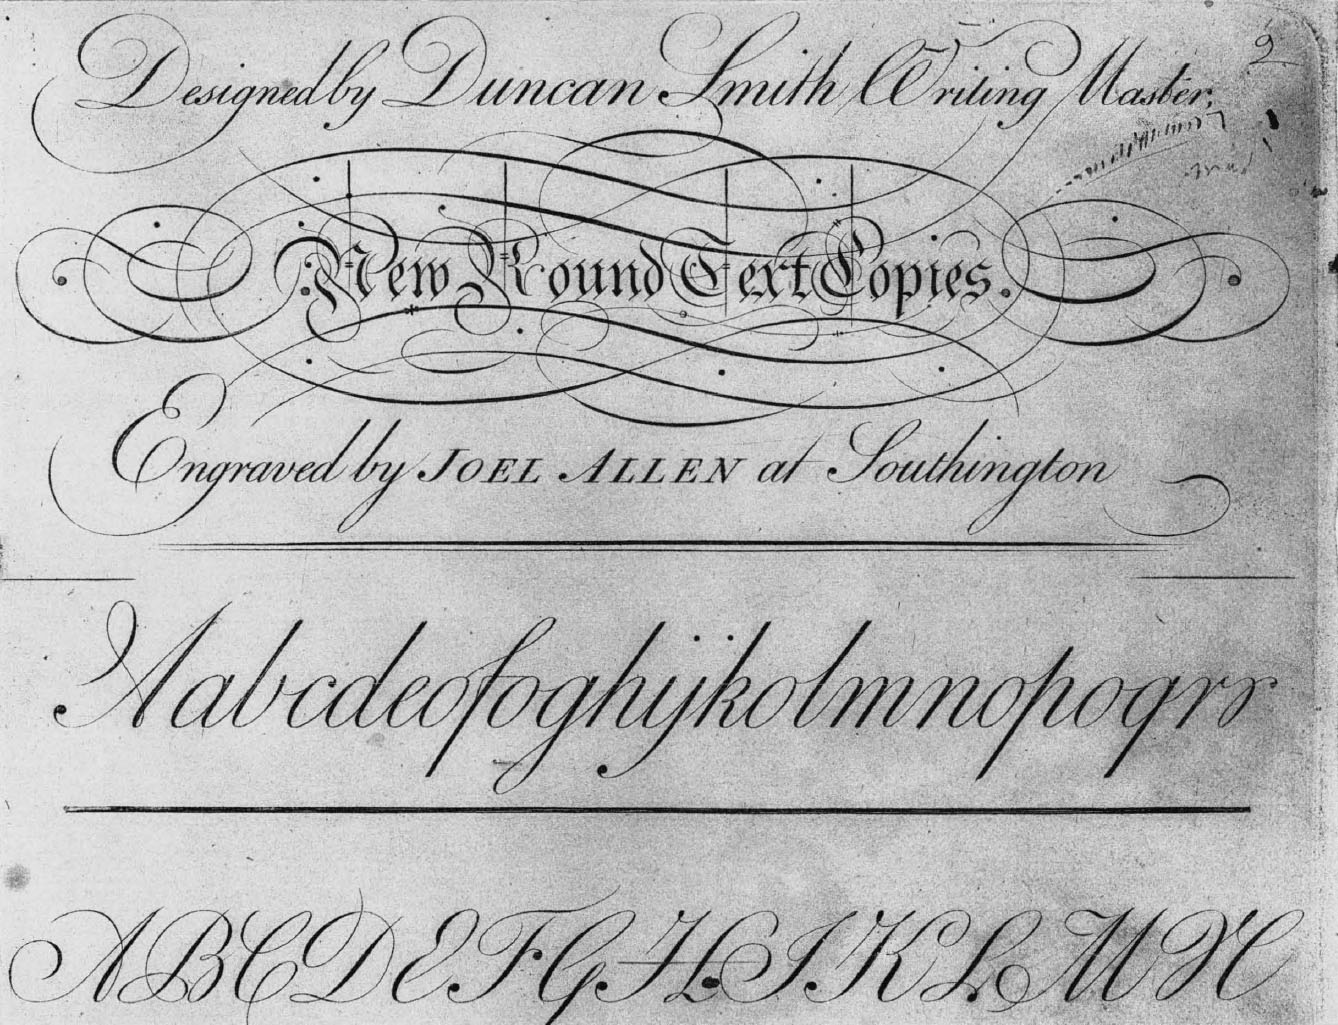 Designed by Duncan Smith Writing Master,
New Round Text Copies.
Engraved by JOEL ALLEN at Southington
Aabcdeofoghijkolmnopoqrr
ABCDEFGHIKLMN